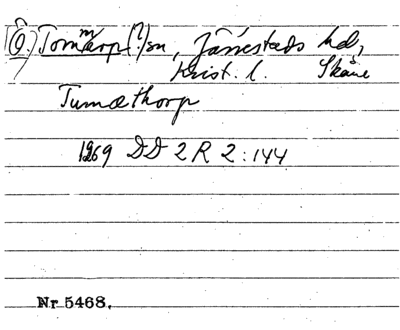 (Ö.) Tommarp (?) sn, Järrestads hd,
Krist. l. Skåne
Tumæthorp
1269 DD 2 R 2:144
Nr 5468.